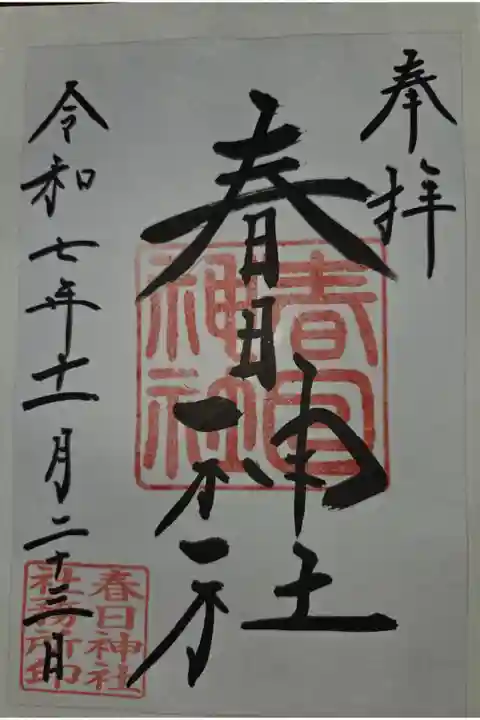 奉拝
春日神社
春日神社
令和七年十一月二十三日
春日神社
社務所印